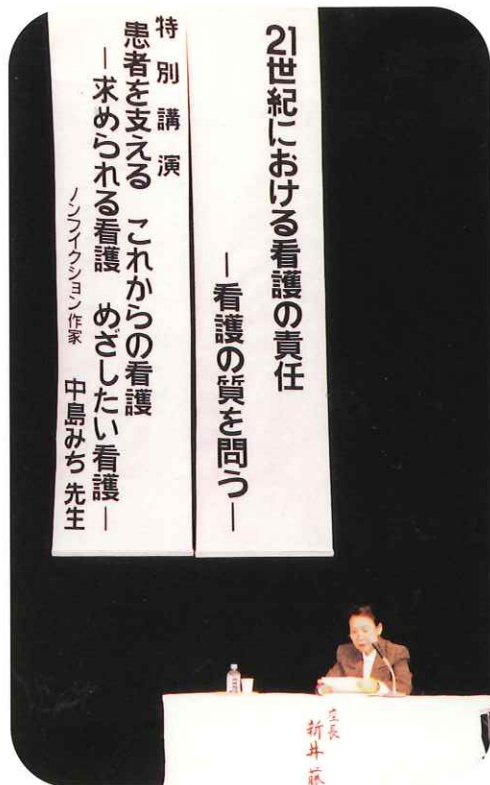 21世紀における看護の責任
―看護の質を問う―
特別講演
患者を支える これからの看護
―求められる看護 めざしたい看護―
ノンフィクション作家 中島みち 先生
座長
新井 藤